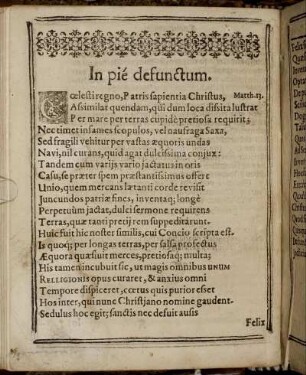 In pié defunctum.
Cœlesti regno, Patris sapientia Christus, Matth.13.
Assimilat quendam, qui dum loca dissita lustrat
Per mare per terras cupidè pretiosa requirit;
Nec timet infames scopulos, vel naufraga Saxa,
Sed fragili vehitur per vastas æquoris undas
Navi, nil curans, quid agat dulcissima conjux:
Tandem cum varijs vario jactatus in oris
Casu, se præter spem præstantissimus offert
Unio, quem mercans lætanti corde revisit
Jucundos patriæ fines, inventaq; longè
Perpetuùm jactat, dulci sermone requirens
Terras, quæ tanti pretij rem suppeditarunt.
Huic fuit hic noster similis, cui Concio scripta est.
Is quoq; per longas terras, per salsa profectus
Æquora quæsivit merces, pretiosaq; multa;
His tamen incubuit sic, ut magis omnibus UNUM
RELIGIONIS opus curaret, & anxius omni
Tempore dispiceret, cœtus quis purior esset
Hos inter, qui nunc Christjano nomine gaudent.
Sedulus hoc egit; sanctis nec desuit ausis
Felix